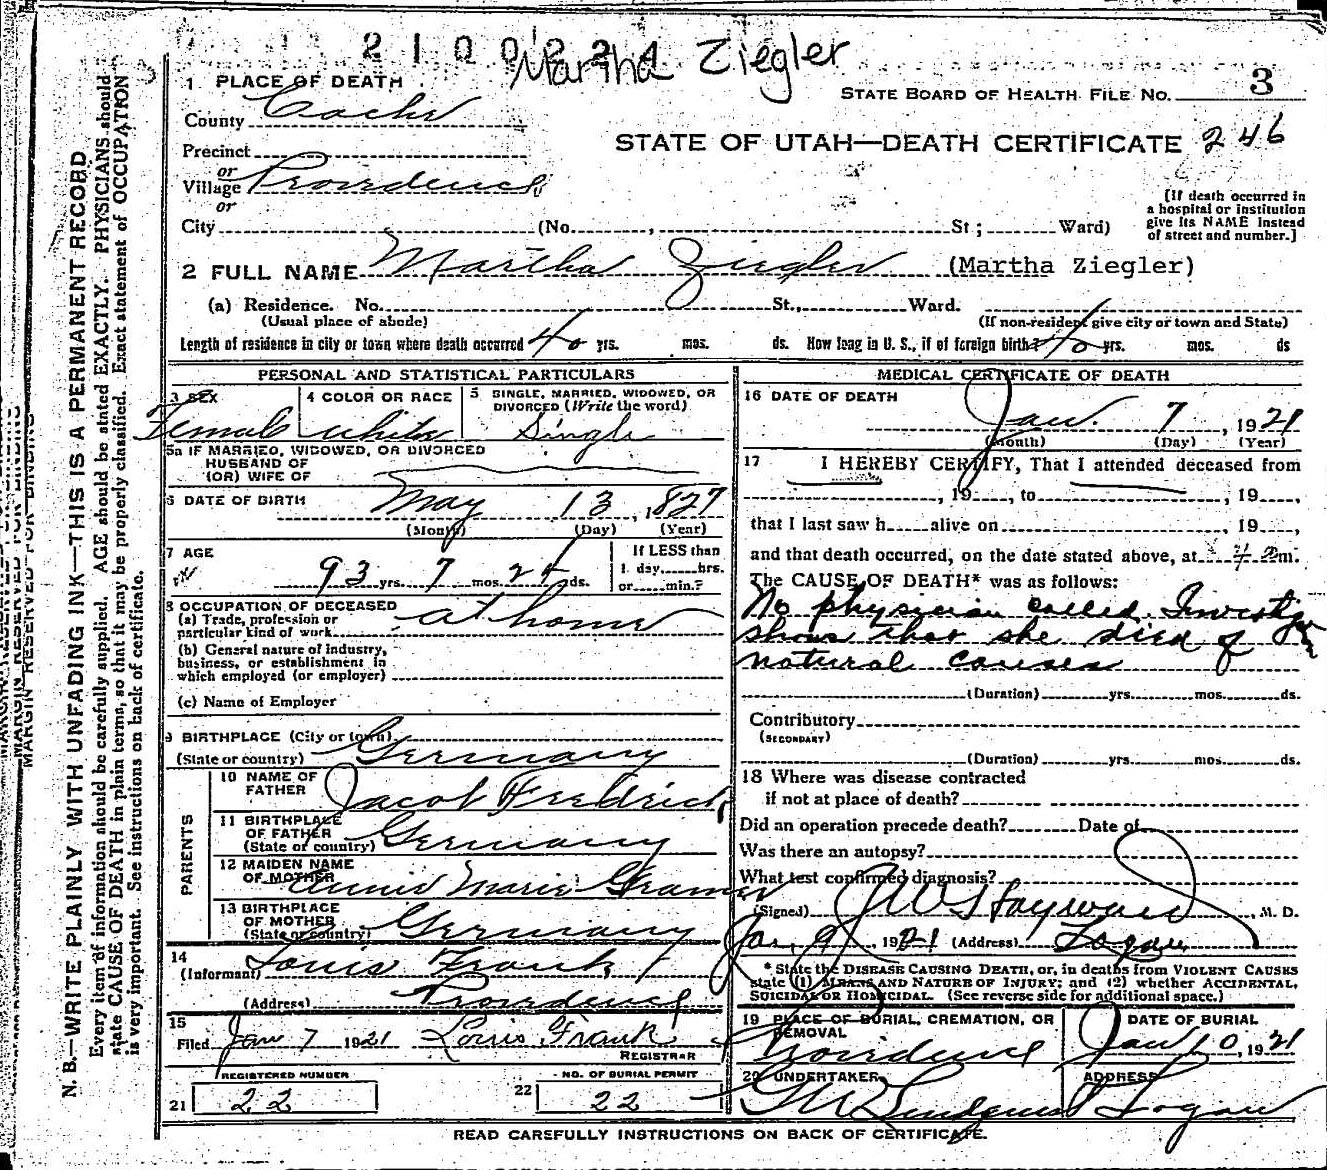 2100224
Martha Ziegler
1 PLACE OF DEATH
STATE BOARD OF HEALTH FILE No. 3
County Cache
STATE OF UTAH—DEATH CERTIFICATE 246
Precinct
or
Village Providence
or
[If death occurred in
a hospital or institution
give its NAME instead
of street and number.]
City (No. , St ; Ward)
2 FULL NAME Martha Ziegler (Martha Ziegler)
(a) Residence. No. St., Ward.
(Usual place of abode) (If non-resident give city or town and State)
Length of residence in city or town where death occurred 40 yrs. mos. ds. How long in U. S., if of foreign birth? 40 yrs. mos. ds
PERSONAL AND STATISTICAL PARTICULARS
3 SEX 4 COLOR OR RACE 5 SINGLE, MARRIED, WIDOWED, OR
DIVORCED (Write the word)
Female white Single
5a IF MARRIED, WIDOWED, OR DIVORCED
HUSBAND OF
(OR) WIFE OF
6 DATE OF BIRTH May 13, 1827
(Month) (Day) (Year)
7 AGE If LESS than
1 day, hrs.
93 yrs. 7 mos. 24 ds. or min.?
8 OCCUPATION OF DECEASED
(a) Trade, profession or
particular kind of work at home
(b) General nature of industry,
business, or establishment in
which employed (or employer)
(c) Name of Employer
9 BIRTHPLACE (City or town)
(State or country) Germany
PARENTS
10 NAME OF
FATHER Jacob Fredrick
11 BIRTHPLACE
OF FATHER
(State or country) Germany
12 MAIDEN NAME
OF MOTHER Annie Marie Gramer
13 BIRTHPLACE
OF MOTHER
(State or country) Germany
14
(Informant) Louis Frank
(Address) Providence
15
Filed Jan 7 1921 Louis Frank
REGISTRAR
REGISTERED NUMBER NO. OF BURIAL PERMIT
21 22 22 22
MEDICAL CERTIFICATE OF DEATH
16 DATE OF DEATH Jan. 7, 1921
(Month) (Day) (Year)
17 I HEREBY CERTIFY, That I attended deceased from
, 19 , to , 19 ,
that I last saw h alive on , 19 ,
and that death occurred, on the date stated above, at m.
The CAUSE OF DEATH* was as follows:
No physician called.
shows that she died of
natural causes
(Duration) yrs. mos. ds.
Contributory
(SECONDARY)
(Duration) yrs. mos. ds.
18 Where was disease contracted
if not at place of death?
Did an operation precede death? Date of
Was there an autopsy?
What test confirmed diagnosis?
(Signed) J W Hayward, M. D.
Jan. 9, 1921 (Address) Logan
* State the DISEASE CAUSING DEATH, or, in deaths from VIOLENT CAUSES
state (1) MEANS AND NATURE OF INJURY; and (2) whether ACCIDENTAL,
SUICIDAL OR HOMICIDAL. (See reverse side for additional space.)
19 PLACE OF BURIAL, CREMATION, OR
REMOVAL
Providence
DATE OF BURIAL
Jan 10, 1921
20 UNDERTAKER
ADDRESS
Lindquist Logan
READ CAREFULLY INSTRUCTIONS ON BACK OF CERTIFICATE.
MARGIN RESERVED FOR BINDING
N. B.—WRITE PLAINLY WITH UNFADING INK—THIS IS A PERMANENT RECORD
Every item of information should be carefully supplied. AGE should be stated EXACTLY. PHYSICIANS should
state CAUSE OF DEATH in plain terms, so that it may be properly classified. Exact statement of OCCUPATION
is very important. See instructions on back of certificate.